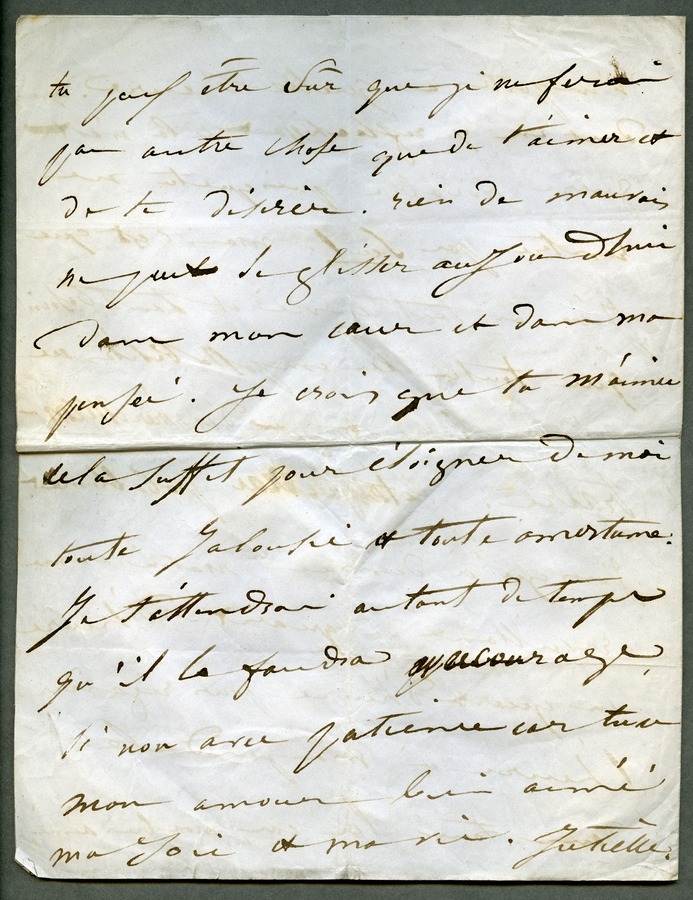 tu peux être sûr que je ne ferai
pas autre chose que de t'aimer et
de te désirer. rien de mauvais
ne peut se glisser aujourd'hui
dans mon cœur et dans ma
pensée. Je crois que tu m'aimes
cela suffit pour éloigner de moi
toute jalousie et toute amertume.
Je t'attendrai autant de temps
qu'il le faudra avec courage
si non avec patience car tu es
mon amour bien aimé
ma joie et ma vie. Juliette.